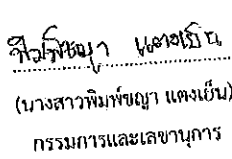 พิมพ์ชญา แตงเย็น
(นางสาวพิมพ์ชญา แตงเย็น)
กรรมการและเลขานุการ